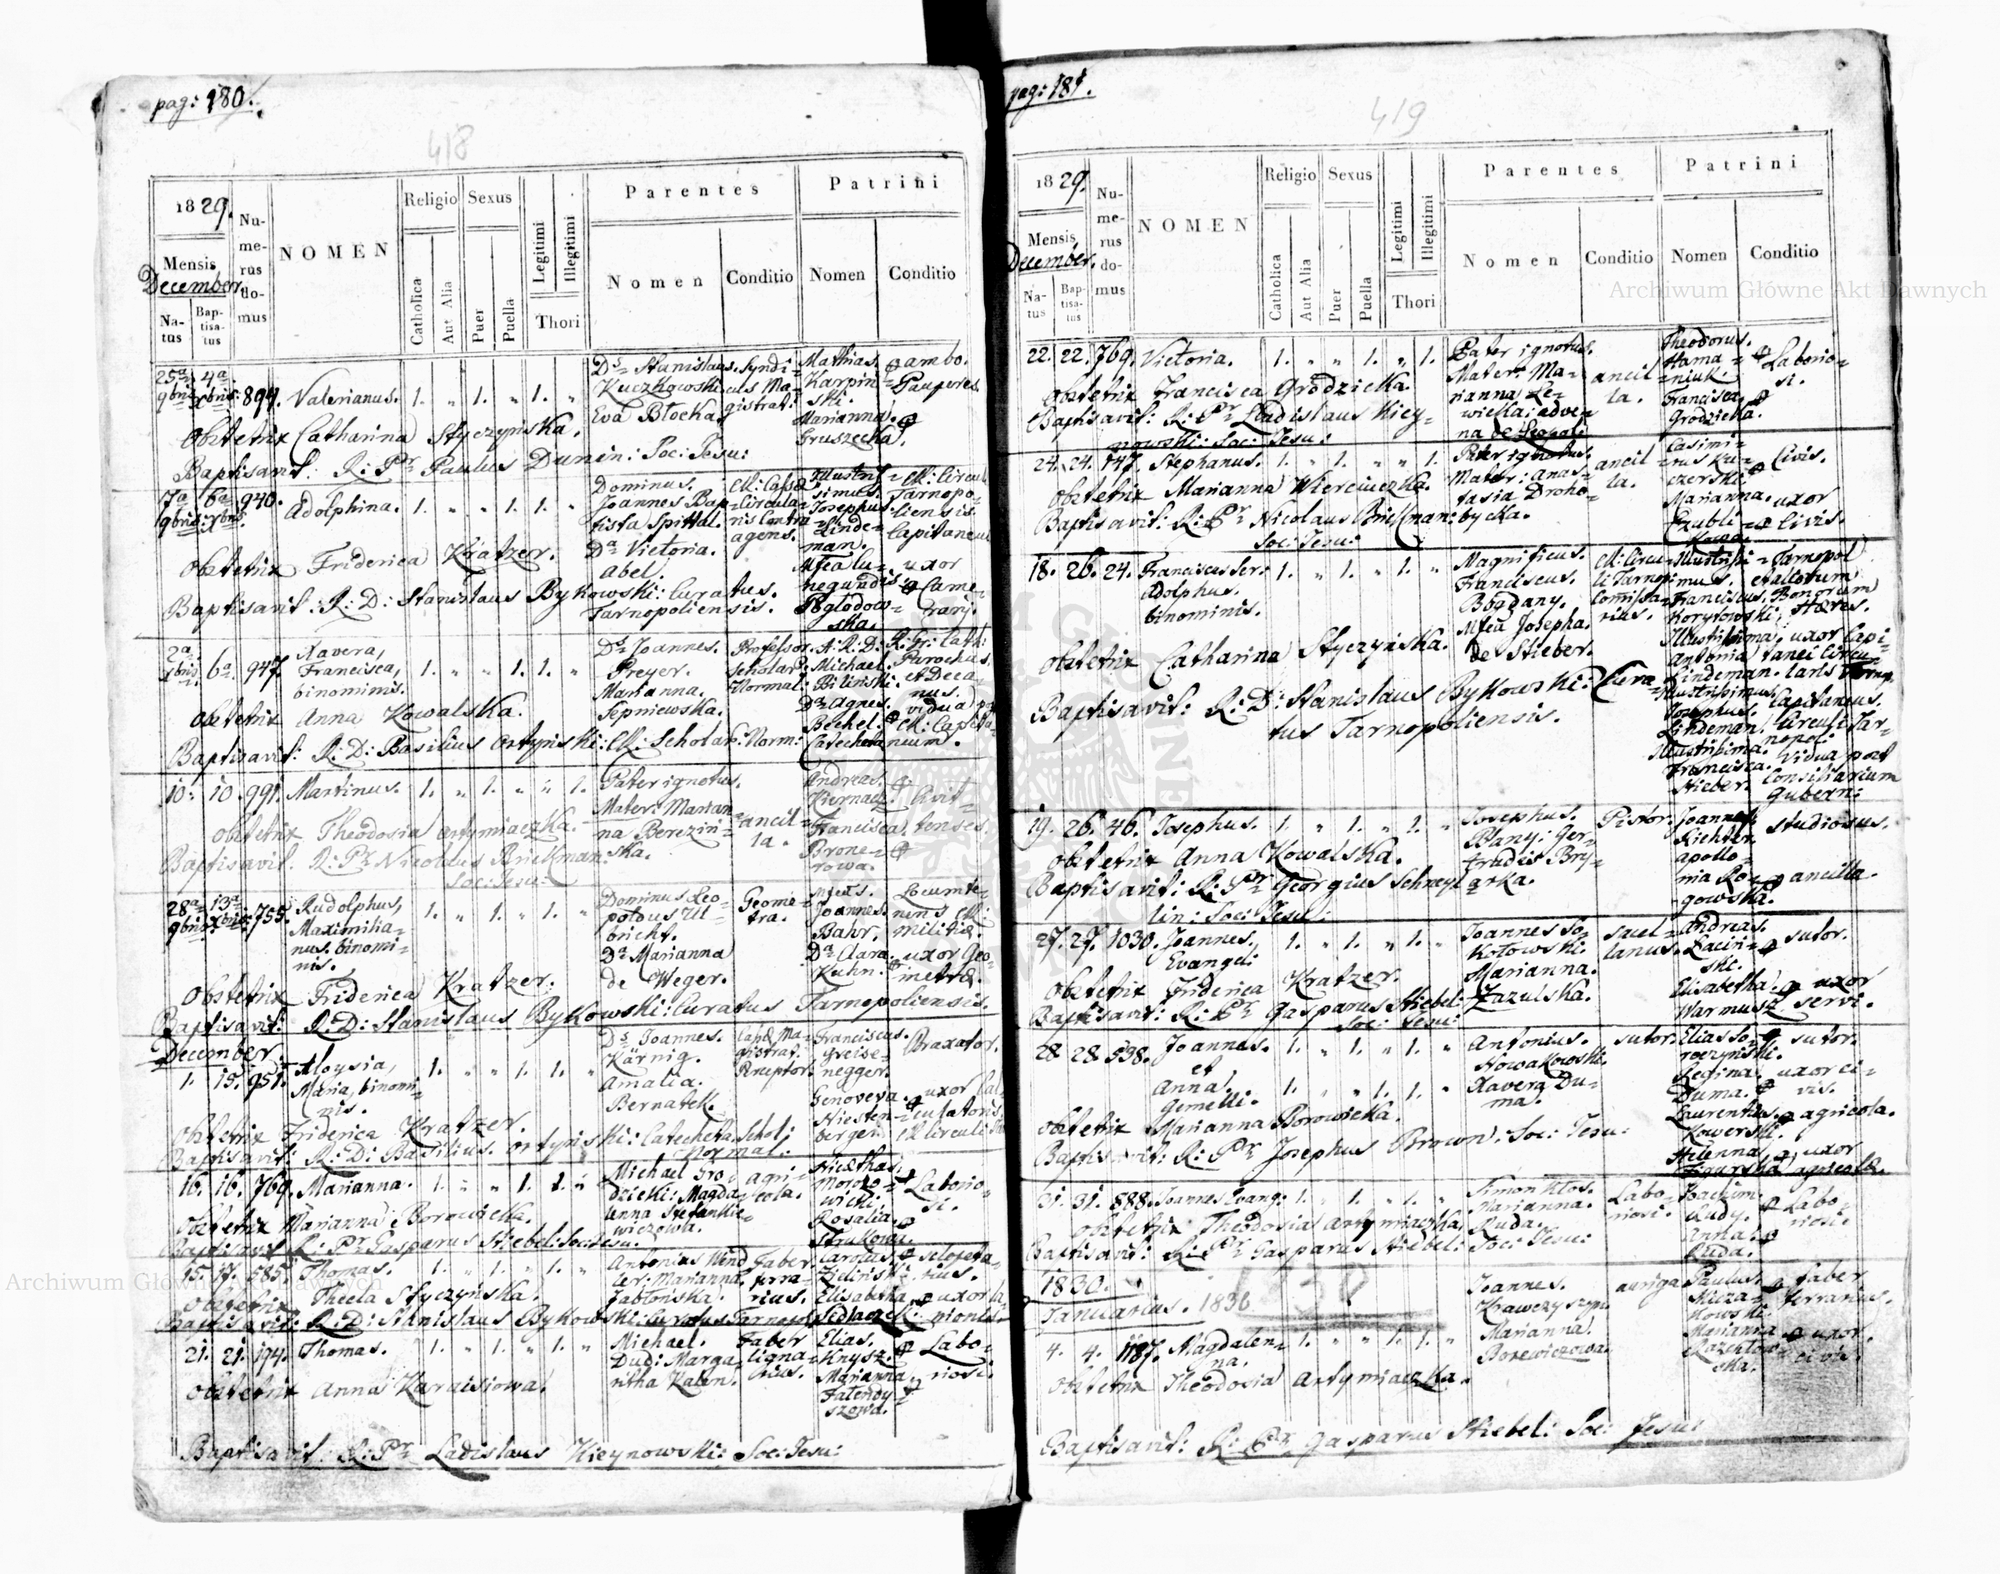 pag: 180.
418
1829.
Mensis
December.
Natus
Baptisatus
Numerus domus
NOMEN
Religio
Catholica
Aut Alia
Sexus
Puer
Puella
Legitimi
Illegitimi
Thori
Parentes
Nomen
Conditio
Patrini
Nomen
Conditio
25a 9bris
4a Xbris
894.
Valerianus.
1. " 1. " 1. "
Ds Stanislaus
Kuczkowski
Eva Błocka
Syndicus Magistrat:
Mathias
Karpinski.
Marianna
Gruszecka.
ambo
Pauperes
Obstetrix Catharina Styczyńska.
Baptisavit: R: Pr Paulus Dunin: Soc: Jesu:
6a Xbris
940.
Adolphina.
1. " " 1. 1. "
Dominus
Joannes Baptista Spittal.
Da Victoria.
Abel.
Illustrissimus
Josephus
Lindeman.
Tarnopoliensis
Capitaneus
uxor
Obstetrix Friderica Kratzer.
Baptisavit: R: D: Stanislaus Bykowski: Curatus.
Tarnopoliensis.
2a Xbris
6a
947.
Xavera,
Francisca,
binominis.
1. " " 1. 1. "
Ds Joannes.
Preyer.
Marianna.
Sepniewska.
Professor
Scholar:
Normal:
A: R: D:
Michael
Biliński.
Da Agnes
Bechel.
R: Gr: Cath:
Parochus
et Decanus.
vidua post
CR: Capitaneum.
Obstetrix Anna Kowalska.
Baptisavit: R: D: Basilius Ortyński: CR: Scholar: Norm: Catecheta
10. 10. 991.
Martinus.
1. " 1. " " 1.
Pater ignotus.
Mater: Marianna Berezinska.
ancilla.
Andreas
Francisca
Obstetrix Theodosia Artymiaczka.
Baptisavit: R: Pr Nicolaus Brickman:
Soc: Jesu:
28a 9bris
13a Xbris
755.
Rudolphus,
Maximilianus. binominis.
1. " 1. " 1. "
Dominus Leopoldus Ulbricht.
Da Marianna
de Weger.
Geometra.
Joannes
Bahr.
Da Clara
Kuhn.
Locumtenens CR:
militiæ.
uxor Geometræ.
Obstetrix Friderica Kratzer.
Baptisavit: R: D: Stanislaus Bykowski: Curatus Tarnopoliensis.
December.
1. 15. 951.
Aloysia,
Maria, binominis.
1. " " 1. 1. "
Ds Joannes.
Kärnig.
Amalia.
Bernatek.
Magistrat:
Franciscus.
Greisenegger.
Genoveva
Hiestenberger
Braxator.
uxor
Obstetrix Friderica Kratzer.
Baptisavit: R: D: Basilius Ortyński: Catecheta Schol:
Normal.
16. 16. 769.
Marianna.
1. " " 1. 1. "
Michael Grodzicki: Magdalenna Stefankiewiczowa.
agricola.
Rosalia
Laboriosi.
Obstetrix Marianna Borowicka.
Baptisavit R: Pr Gasparus Stiebel: Soc: Jesu:
15. 17. 585.
Thomas.
1. " 1. " 1. "
Antonius
Marianna
Jabłońska.
Faber
ferrarius.
Carolus
Zieliński
Elisabetha
Obstetrix Thecla Styczyńska.
Baptisavit: R: D: Stanislaus Bykowski: Curatus
21. 21. 194.
Thomas.
1. " 1. " 1. "
Michael.
Dud: Margaritha Kalen.
Faber
lignarius.
Elias
Knysz.
Marianna
Laboriosi.
Obstetrix Anna Karaisiowa.
Baptisavit: R: Pr Ladislaus Kieynowski: Soc: Jesu:
pag: 181.
419
1829.
Mensis
December.
Natus
Baptisatus
Numerus domus
NOMEN
Religio
Catholica
Aut Alia
Sexus
Puer
Puella
Legitimi
Illegitimi
Thori
Parentes
Nomen
Conditio
Patrini
Nomen
Conditio
22. 22. 769.
Victoria.
1. " " 1. " 1.
Pater ignotus.
Mater: Marianna Lewicka: advena de Leopoli
ancilla.
Theodorus.
Hamaniuk.
Francisca
Grodzicka.
Laboriosi.
Obstetrix Francisca Grodzicka.
Baptisavit: R: Pr Ladislaus Kieynowski: Soc: Jesu:
24. 24. 147.
Stephanus.
1. " 1. " " 1.
Pater ignotus.
Mater: Anastasia Drohobycka.
ancilla.
Casimirus
Marianna
Civis.
uxor
Civis.
Obstetrix Marianna Wierciuczka.
Baptisavit: R: Pr Nicolaus Brickman:
Soc: Jesu:
18. 26. 24.
Franciscus Ser:
Adolphus.
binominis.
1. " 1. " 1. "
Magnificus.
Franciscus.
Bogdany.
Josepha.
de Stieber.
Franciscus
Korytowski,
Illustrissima
Antonia
Lindeman.
Illustrissimus
Josephus
Lindeman.
Illustrissima
Francisca
Stieber.
Bonorum
Hæres.
Capitaneus
Circuli Tarnopol:
Vidua post
Consiliarium
Gubern:
Obstetrix Catharina Styczyńska.
Baptisavit: R: D: Stanislaus Bykowski: Curatus Tarnopoliensis.
19. 26. 46.
Josephus.
1. " 1. " 1. "
Josephus.
Blany: Gertrudis Bryarka.
Pistor.
Joannes
Richter
Apollonia Rogowska.
studiosus.
ancilla.
Obstetrix Anna Kowalska.
Baptisavit: R: Pr Georgius Schneytlin: Soc: Jesu:
27. 27. 1030.
Joannes,
Evangeli
1. " 1. " 1. "
Joannes Sokołowski.
Marianna.
Zazulska.
Andreas.
Elisabetha
Warmusz
sutor.
uxor
servi.
Obstetrix Friderica Kratzer.
Baptisavit: R: Pr Gasparus Stiebel:
Soc: Jesu:
28. 28. 538.
Joannes.
et
Anna
Gemelli.
1. " 1. " 1. "
1. " " 1. 1. "
Antonius.
Nowakowski.
Xavera Duma.
sutor.
Regina
Duma.
Laurentius
Kowerski.
Helenna
sutor.
uxor civis.
agricola.
uxor
agricolæ.
Obstetrix Marianna Borowicka.
Baptisavit: R: Pr Josephus Brown. Soc: Jesu:
31. 31. 888.
Joannes Evang:
1. " 1. " 1. "
Simon Kłos.
Marianna.
Ruda.
Laboriosi.
Joachim
Rudy.
Anna
Ruda.
Laboriosi.
Obstetrix Theodosia Artymiaczka,
Baptisavit: R: Pr Gasparus Stiebel: Soc: Jesu:
1830.
Januarius. 1830
1830
4. 4. 1187.
Magdalenna.
1. " " 1. 1. "
Joannes.
Krawczyszyn
Marianna.
Borewiczowa.
auriga
Paulus.
Marianna
faber
ferrarius.
uxor
civis.
Obstetrix Theodosia Artymiaczka.
Baptisavit: R: Pr Gasparus Stiebel: Soc: Jesu:
Archiwum Główne Akt Dawnych
Archiwum Główne Akt Dawnych